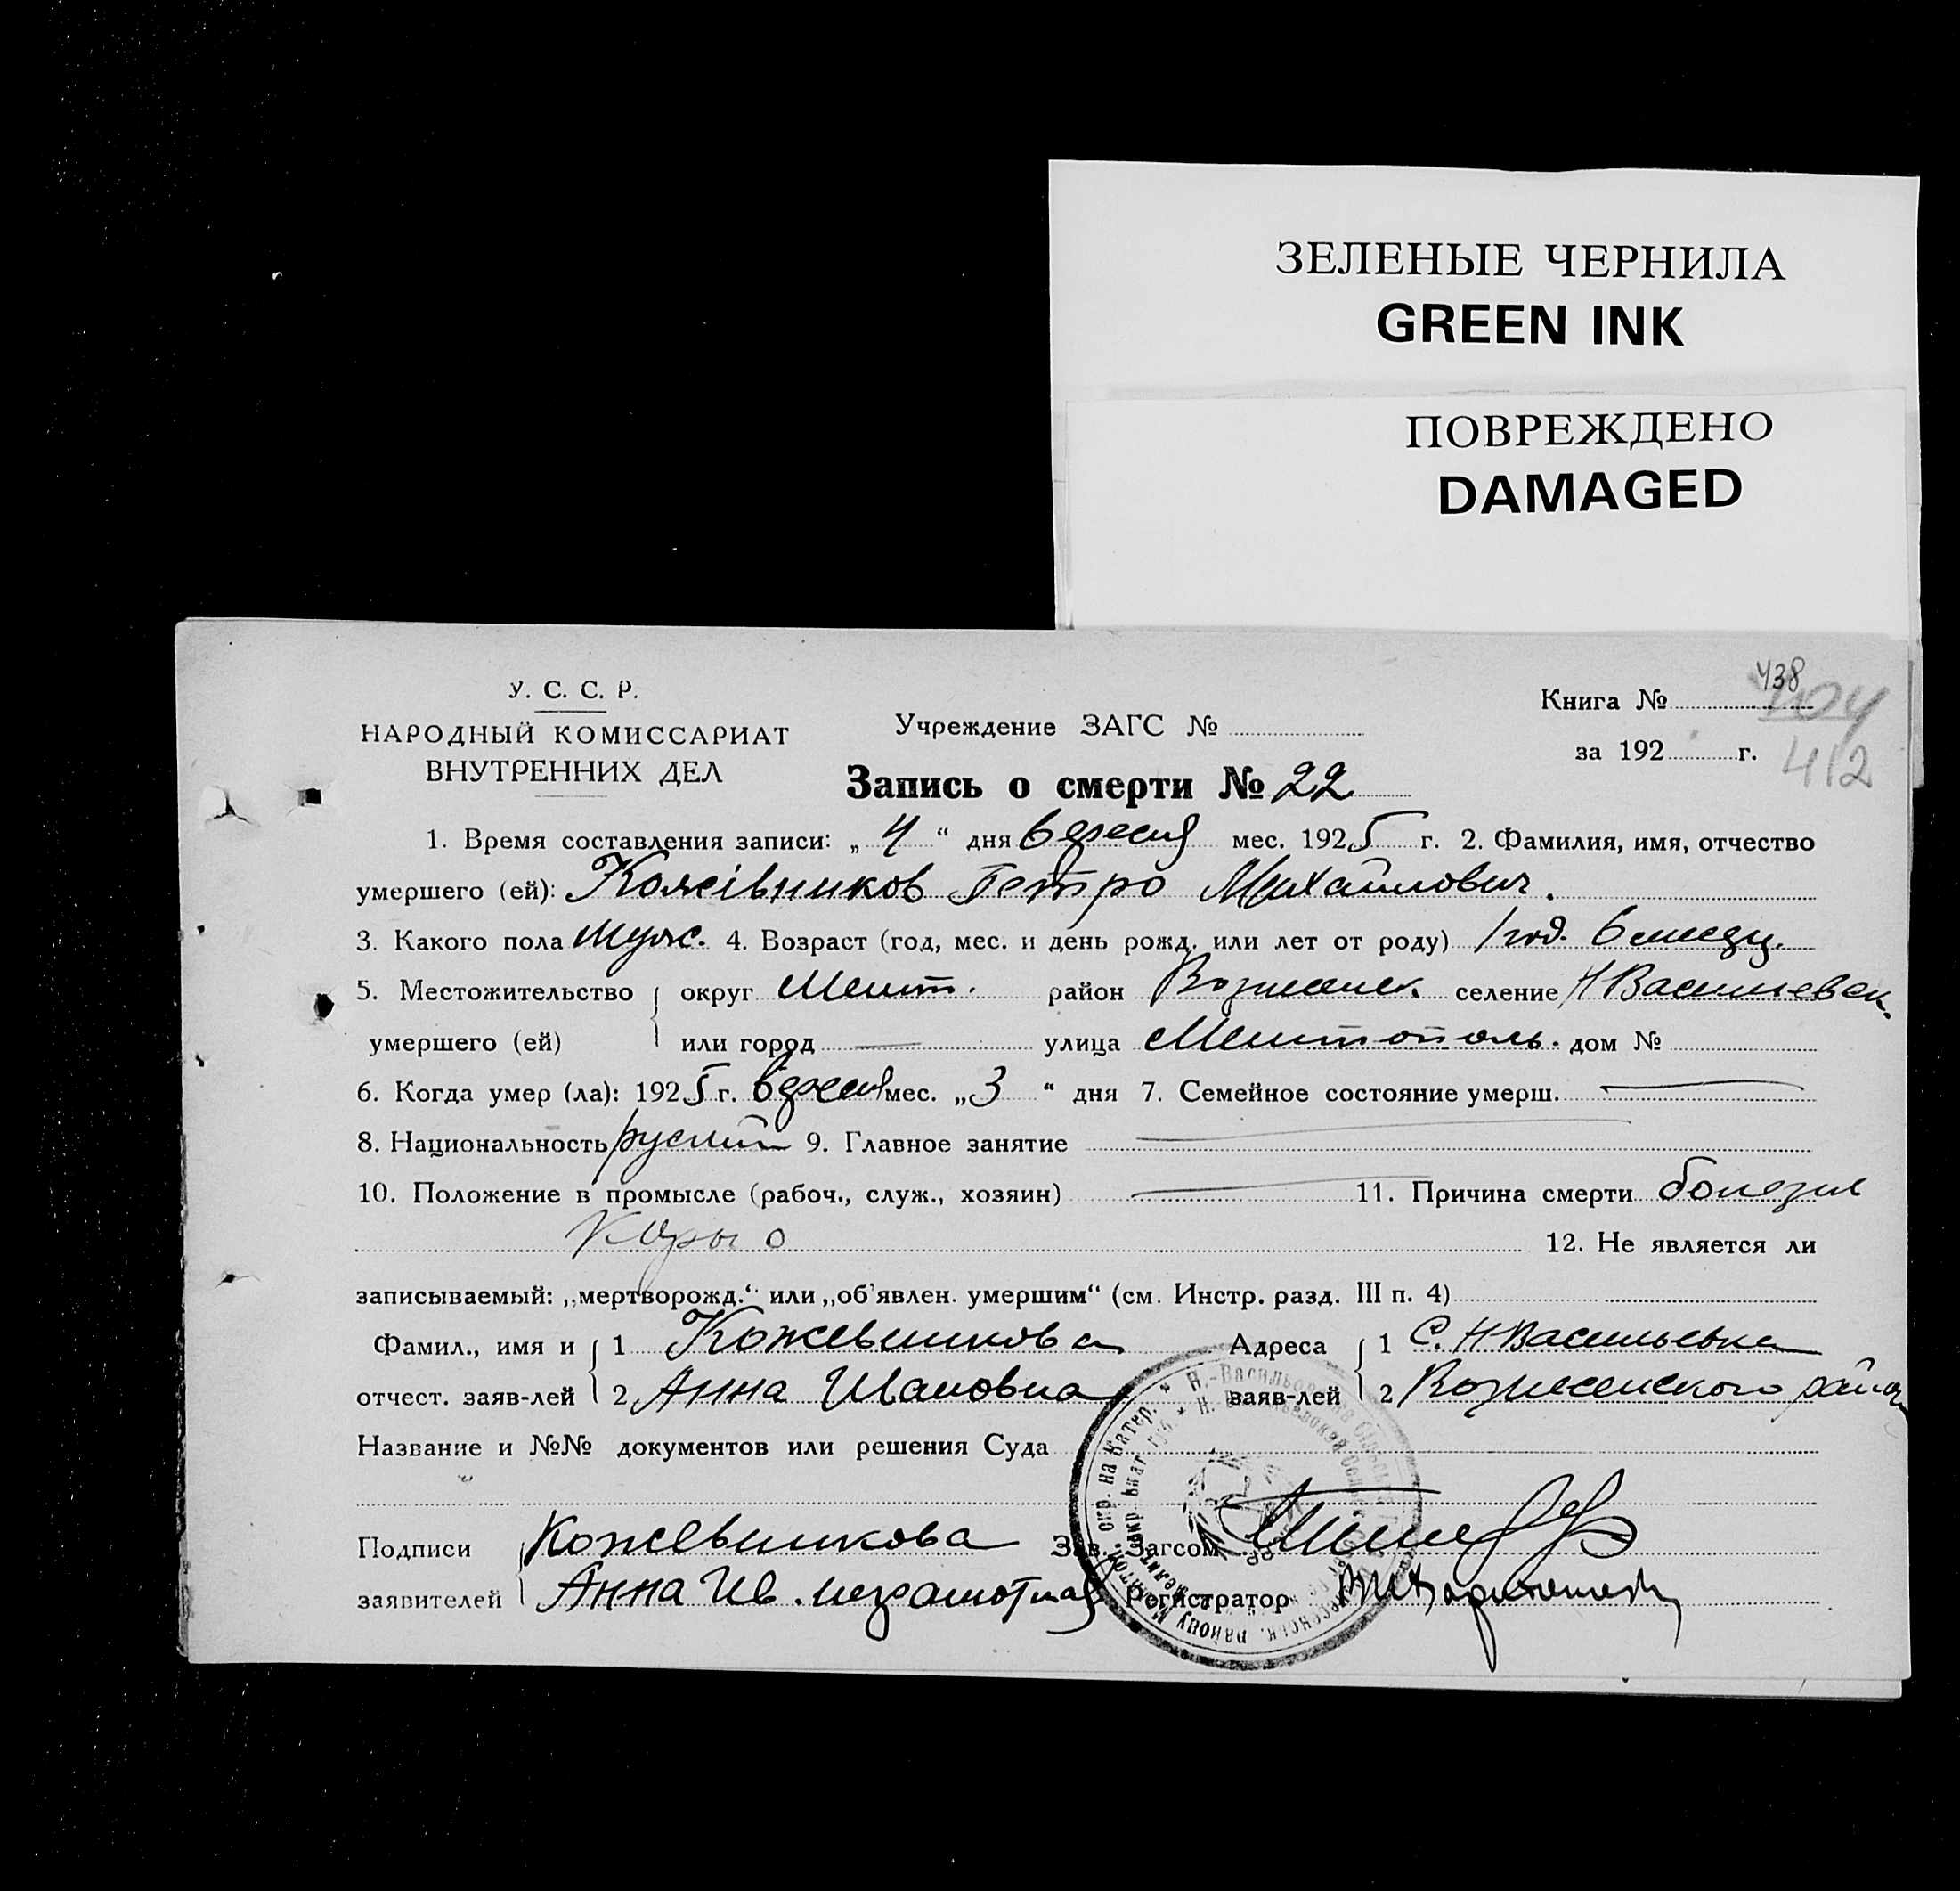 ЗЕЛЕНЫЕ ЧЕРНИЛА
GREEN INK
ПОВРЕЖДЕНО
DAMAGED
У. С. С. Р.
НАРОДНЫЙ КОМИССАРИАТ
ВНУТРЕННИХ ДЕЛ
Учреждение ЗАГС №
Книга № 438
404
за 192 г. 412
Запись о смерти № 22
1. Время составления записи: „ 4 “ дня вересня мес. 1925 г. 2. Фамилия, имя, отчество
умершего (ей): Кожівников Петро Михайлович.
3. Какого пола муж. 4. Возраст (год, мес. и день рожд. или лет от роду) 1 год. 6 месяц.
5. Местожительство округ Мелит. район Вознесенск. селение Н Васильевск.
умершего (ей) или город — улица Мелитополь. дом №
6. Когда умер (ла): 1925 г. вересня мес. „3 “ дня 7. Семейное состояние умерш. —
8. Национальность руский 9. Главное занятие —
10. Положение в промысле (рабоч., служ., хозяин) — 11. Причина смерти
12. Не является ли
записываемый: „мертворожд.“ или „об'явлен. умершим“ (см. Инстр. разд. III п. 4)
Фамил., имя и 1 Кожевникова Адреса 1 С. Н Васильевка
отчест. заяв-лей 2 Анна Ивановна заяв-лей 2 Вознесенского район
Название и №№ документов или решения Суда
Подписи Кожевникова Зав. Загсом
заявителей Анна Ив. неграмотная Регистратор